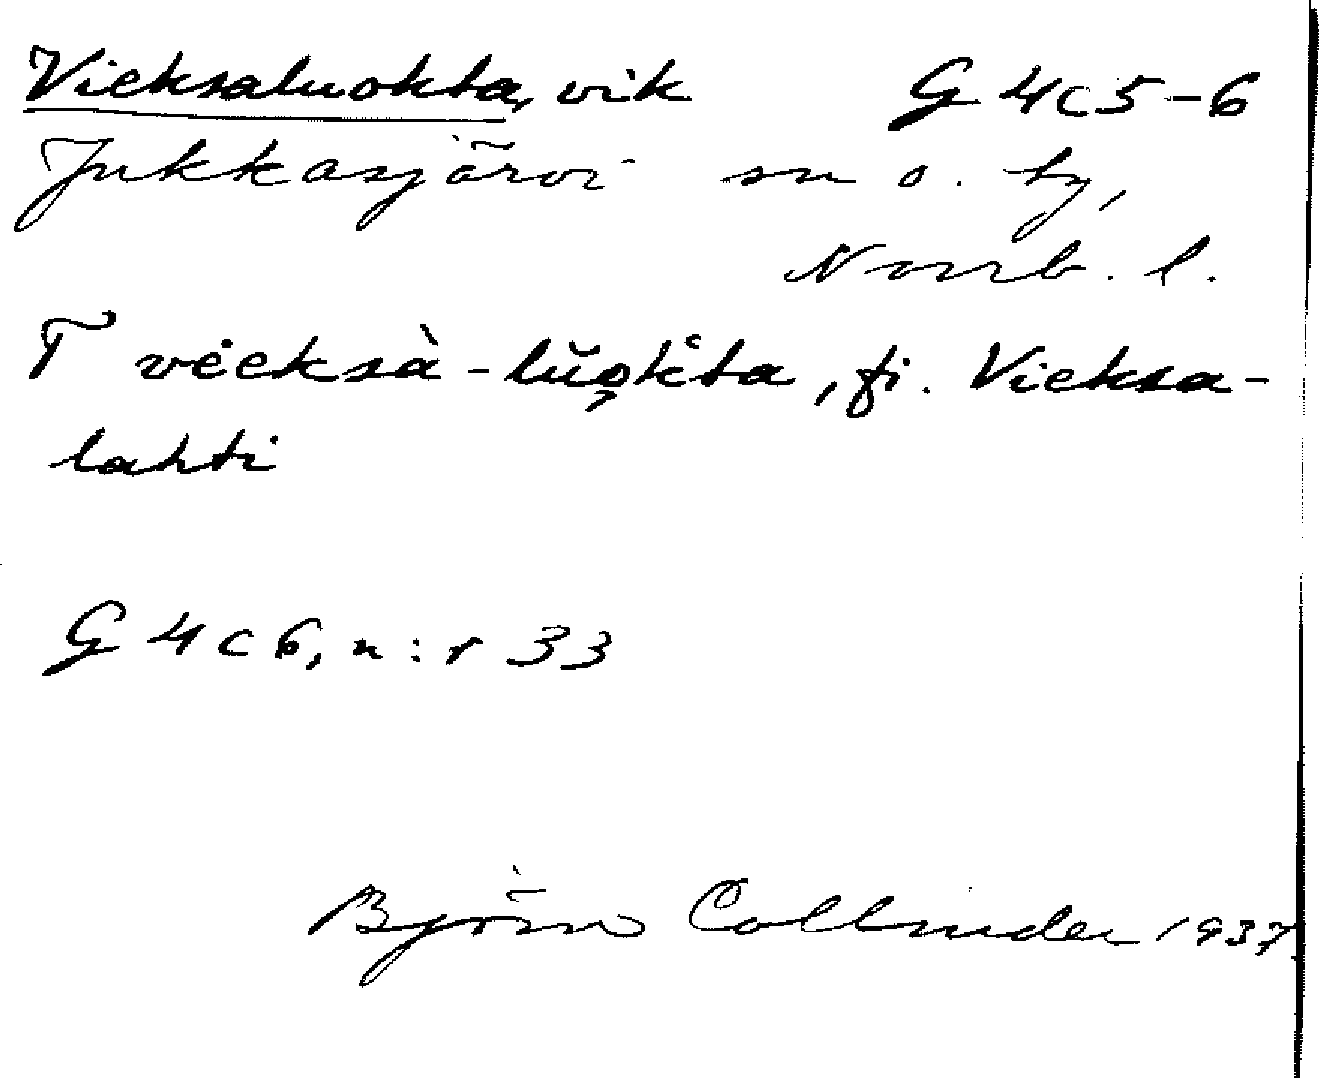 Vieksaluokta, vik G 4c5-6
Jukkasjärvi sn o. by,
Norrb. l.
T vėeksà-lŭǫk̔ta, fi. Vieksa-
lahti
G 4c6, n:r 33
Björn Collinder 1937.